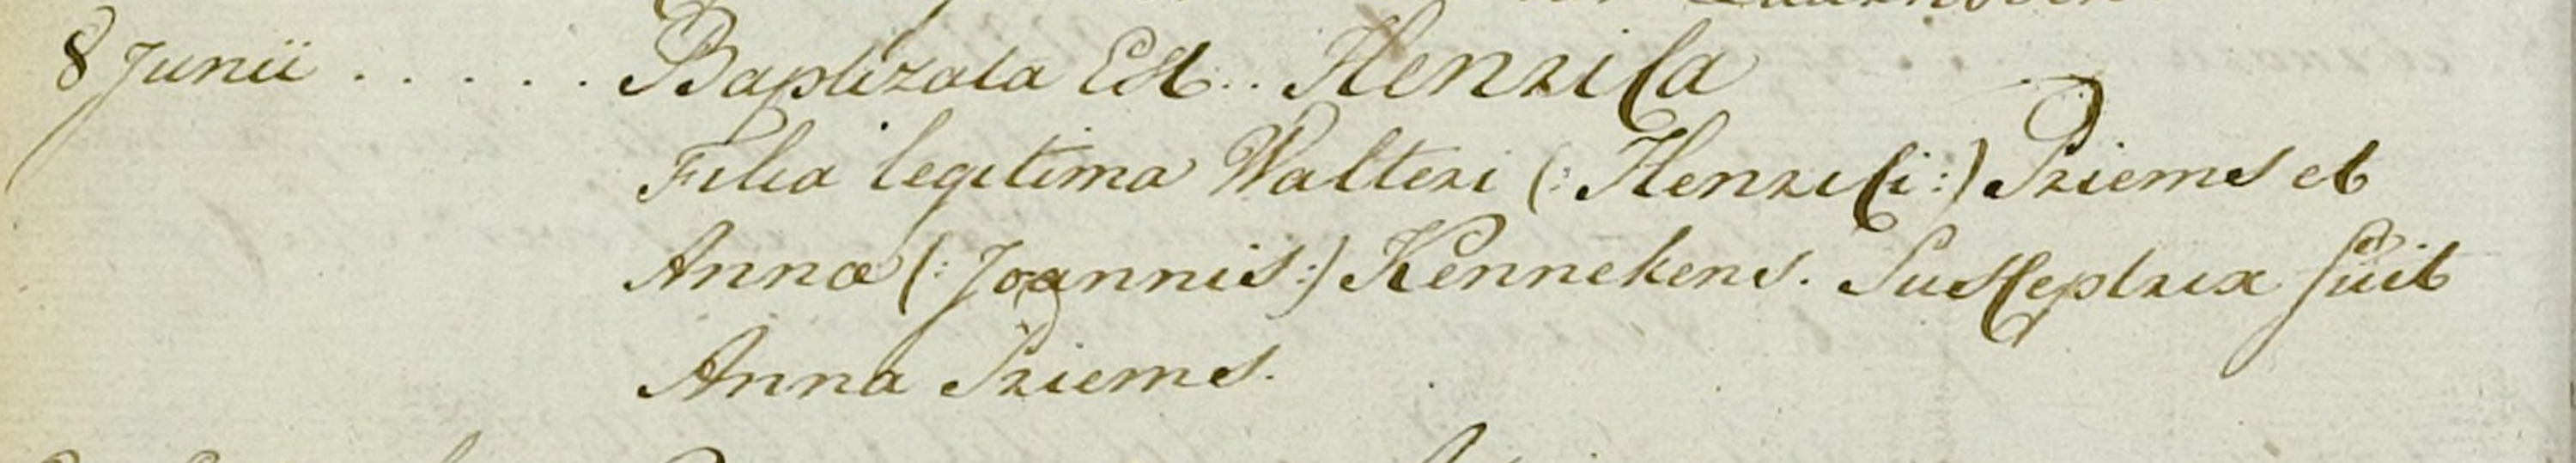 8 Junii . . . . . . Baptizata Est.. Henrica
Filia legitima Walteri (: Henrici :) Priems et
Annæ (: Joannis :) Kennekens. Susceptrix fuit
Anna Priems.